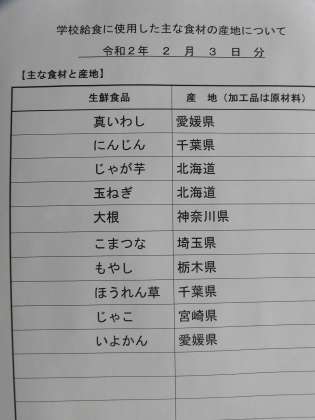 学校給食に使用した主な食材の産地について
令和2年 2 月 3 日 分
【主な食材と産地】
生鮮食品 産 地（加工品は原材料）
真いわし 愛媛県
にんじん 千葉県
じゃが芋 北海道
玉ねぎ 北海道
大根 神奈川県
こまつな 埼玉県
もやし 栃木県
ほうれん草 千葉県
じゃこ 宮崎県
いよかん 愛媛県